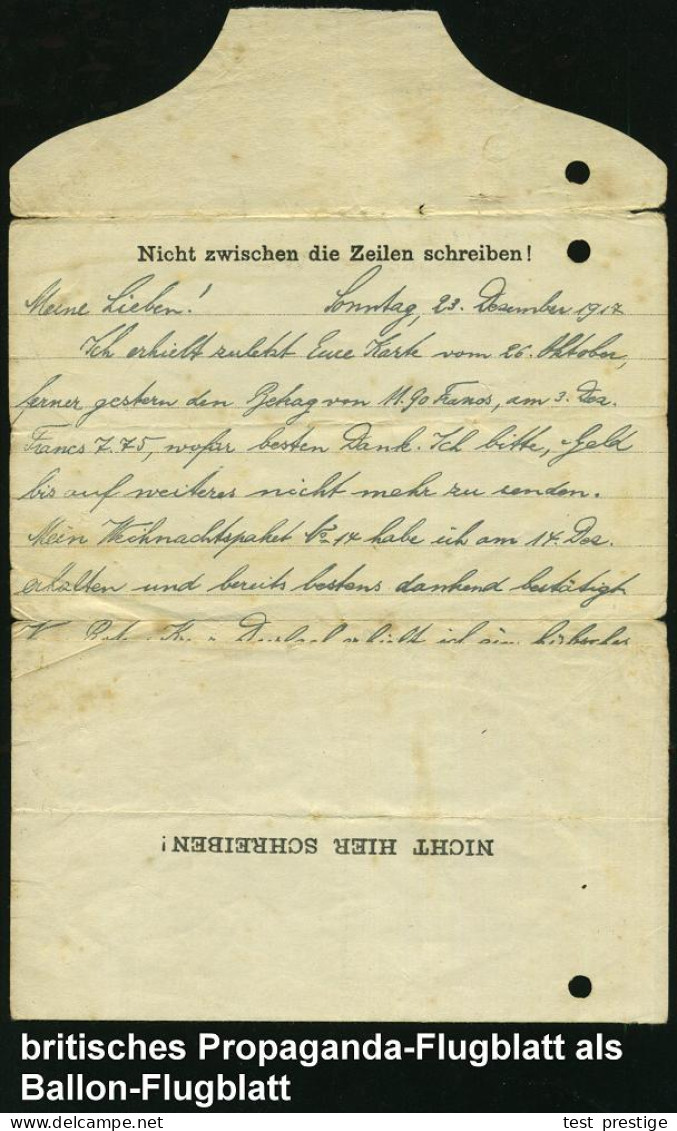 Nicht zwischen die Zeilen schreiben!
Meine Lieben! Sonntag, 23. Dezember 1917
Ich erhielt zuletzt Eure Karte vom 26. Oktober,
ferner gestern den Betrag von 11.90 Francs, am 3. Dez.
Francs 7.75, wofür besten Dank. Ich bitte, Geld
bis auf weiteres nicht mehr zu senden.
Mein Weihnachtspaket No 14 habe ich am 14. Dez.
erhalten und bereits bestens dankend bestätigt
erhielt ich ein hübsches
NICHT HIER SCHREIBEN!
britisches Propaganda-Flugblatt als
Ballon-Flugblatt
test_prestige